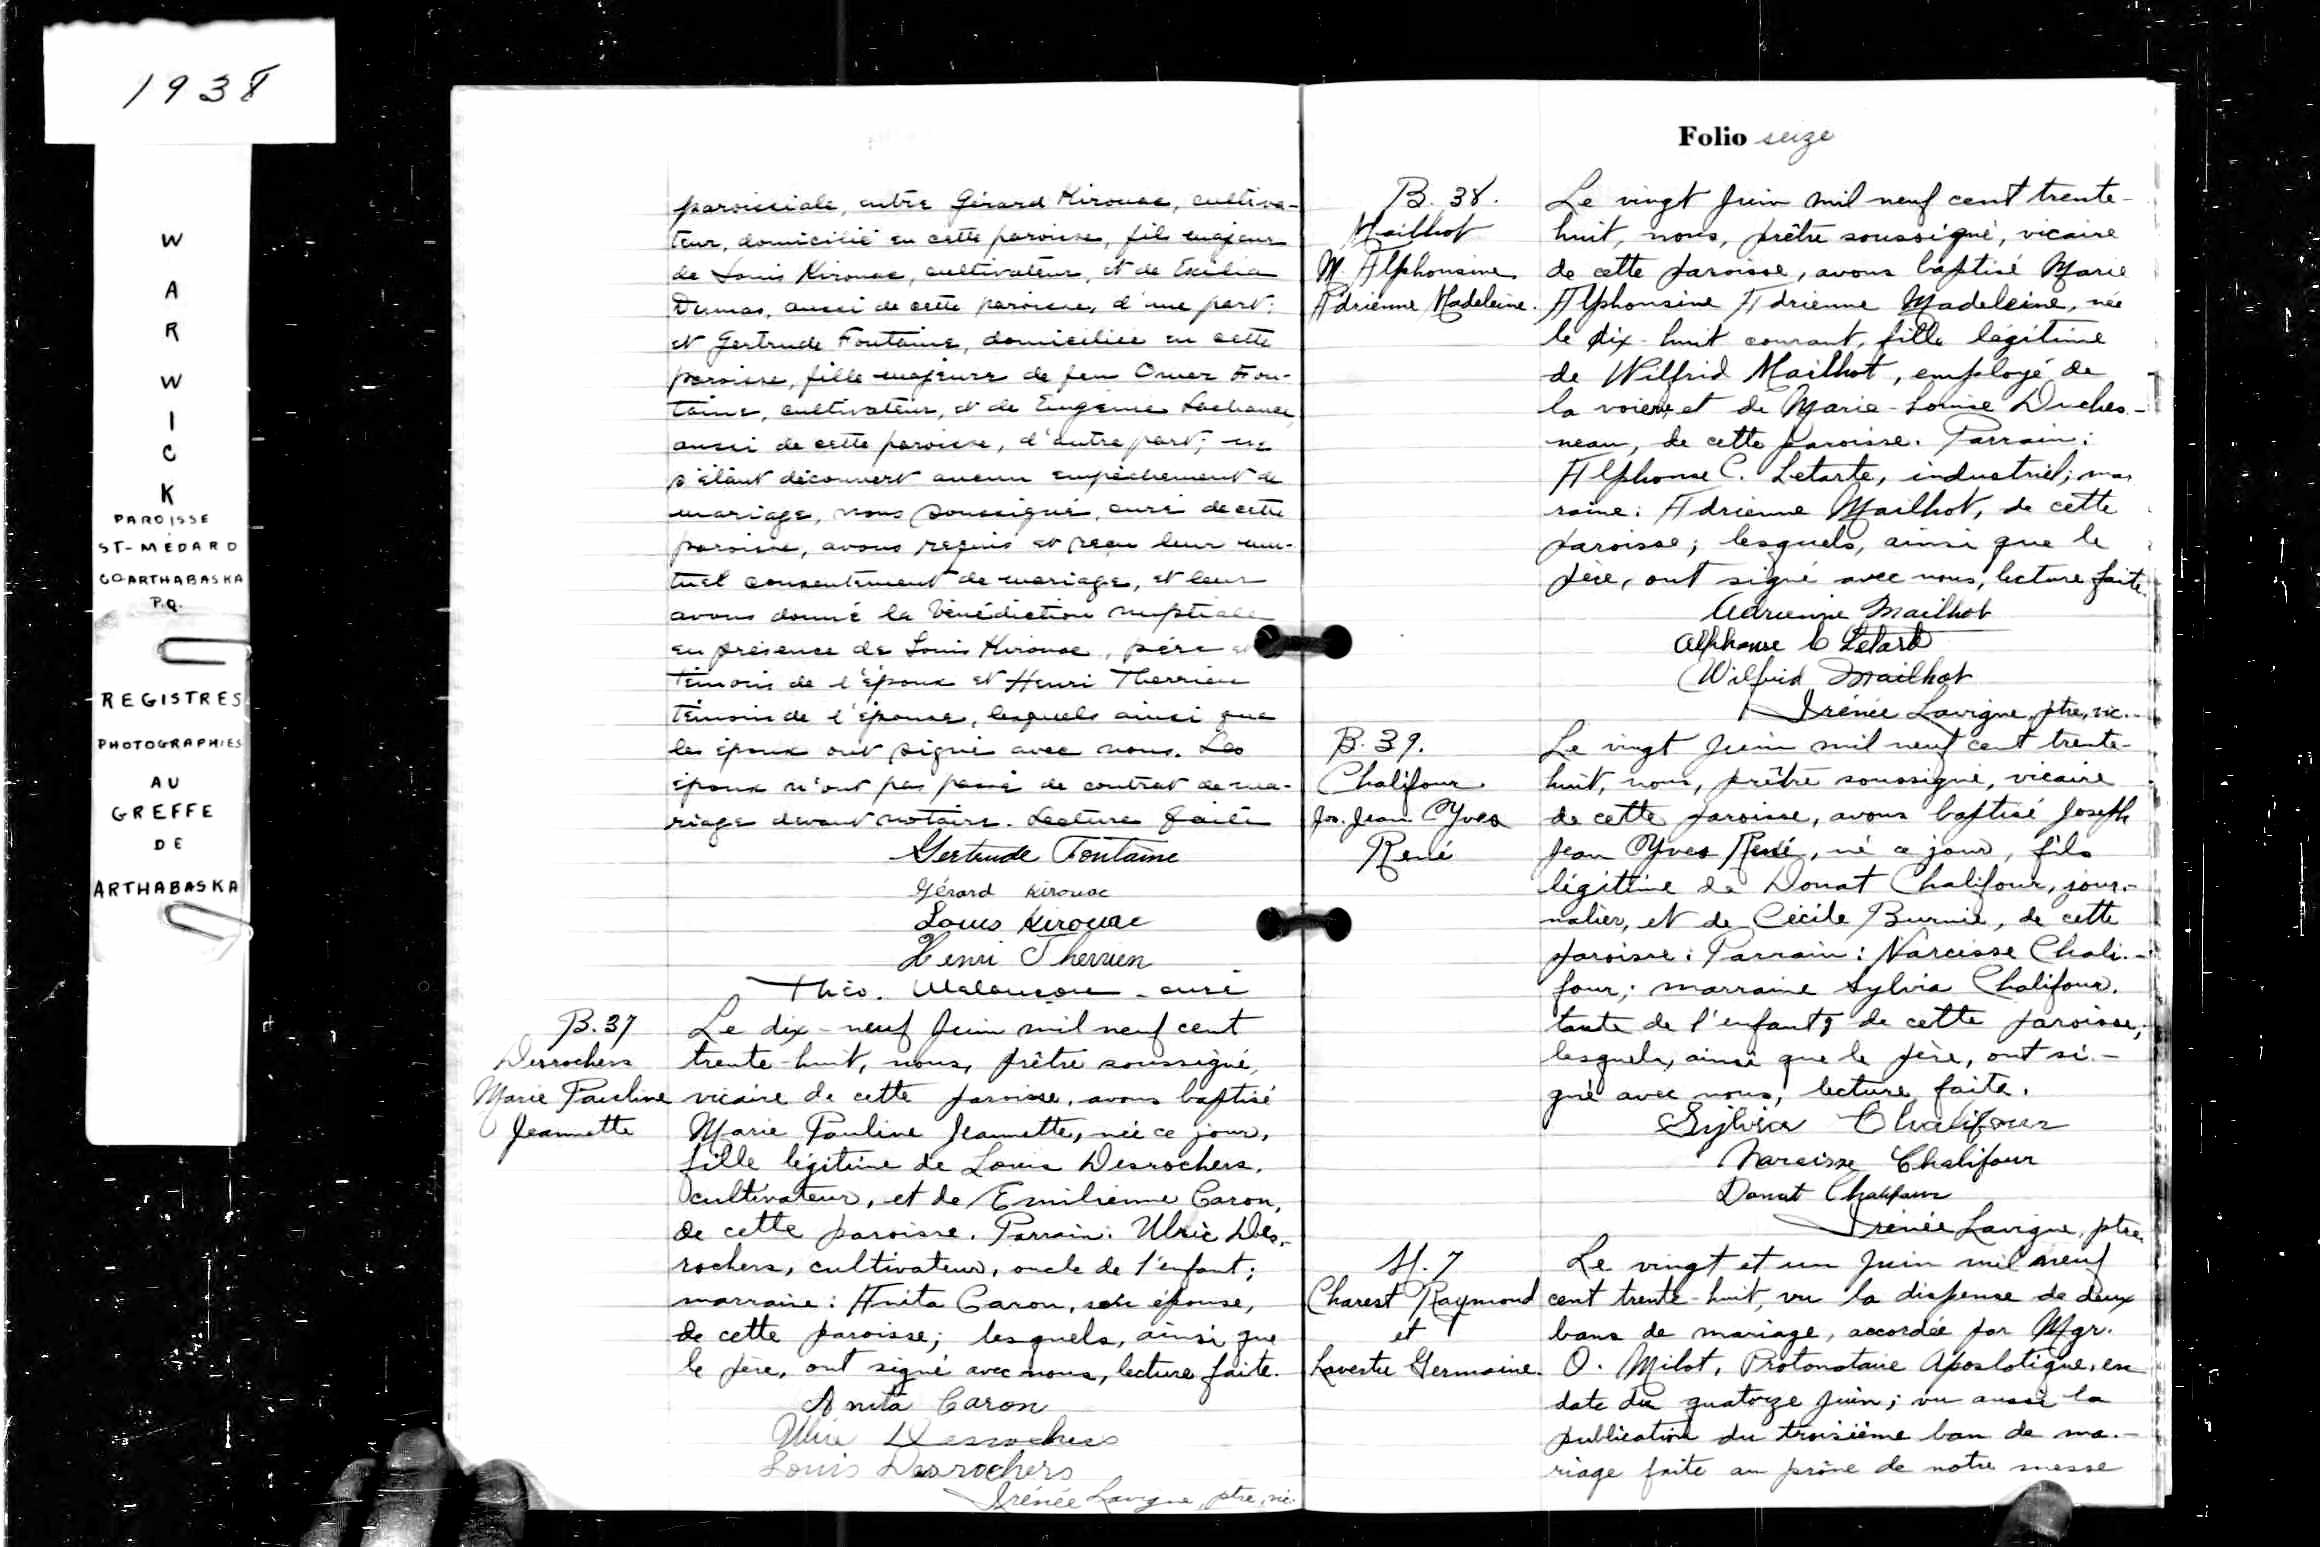 1938
W
A
R
W
I
C
K
PAROISSE
ST-MÉDARD
CO ARTHABASKA
P.Q.
REGISTRES
PHOTOGRAPHIES
AU
GREFFE
DE
ARTHABASKA
paroissiale, entre Gérard Kirouac, cultiva-
teur, domicilié en cette paroisse, fils majeur
de Louis Kirouac, cultivateur, et de Exilia
Dumas, aussi de cette paroisse, d'une part;
et Gertrude Fontaine, domiciliée en cette
paroisse, fille majeure de feu Omer Fon-
taine, cultivateur, et de Eugénie Lachance,
aussi de cette paroisse, d'autre part; ne
s'étant découvert aucun empêchement de
mariage, nous soussigné, curé de cette
paroisse, avons requis et reçu leur mu-
tuel consentement de mariage, et leur
avons donné la bénédiction nuptiale
en présence de Louis Kirouac, père et
témoin de l'époux et Henri Therrien
témoin de l'épouse, lesquels ainsi que
les époux ont signé avec nous. Les
époux n'ont pas passé de contrat de ma-
riage devant notaire. Lecture faite
Gertrude Fontaine
Gérard Kirouac
Louis Kirouac
Henri Therrien
Théo. Melançon curé
B. 37
Desrochers
Marie Pauline
Jeannette
Le dix-neuf Juin mil neuf cent
trente-huit, nous, prêtre soussigné,
vicaire de cette paroisse, avons baptisé
Marie Pauline Jeannette, née ce jour,
fille légitime de Louis Desrochers,
cultivateur, et de Emilienne Caron,
de cette paroisse. Parrain: Ulric Des-
rochers, cultivateur, oncle de l'enfant;
marraine: Anita Caron, son épouse,
de cette paroisse; lesquels, ainsi que
le père, ont signé avec nous, lecture faite.
Anita Caron
Ulric Desrochers
Louis Desrochers
Irénée Lavigne, ptre, vic.
Folio seize
B. 38.
Mailhot
M. Alphonsine
Adrienne Madeleine.
Le vingt Juin mil neuf cent trente-
huit, nous, prêtre soussigné, vicaire
de cette paroisse, avons baptisé Marie
Alphonsine Adrienne Madeleine, née
le dix-huit courant, fille légitime
de Wilfrid Mailhot, employé de
la voierie, et de Marie-Louise Duches-
neau, de cette paroisse. Parrain:
Alphonse C. Letarte, industriel; mar
raine: Adrienne Mailhot, de cette
paroisse; lesquels, ainsi que le
père, ont signé avec nous, lecture faite.
Adrienne Mailhot
Alphonse C Letarte
Wilfrid Mailhot
Irénée Lavigne, ptre, vic.
B. 39.
Chalifour
Jos. Jean Yves
René
Le vingt Juin mil neuf cent trente-
huit, nous, prêtre soussigné, vicaire
de cette paroisse, avons baptisé Joseph
Jean Yves René, né ce jour, fils
légitime de Donat Chalifour, jour-
nalier, et de Cécile Burnie, de cette
paroisse: Parrain: Narcisse Chali-
four; marraine Sylvia Chalifour,
tante de l'enfant, de cette paroisse;
lesquels, ainsi que le père, ont si-
gné avec nous, lecture faite.
Sylvia Chalifour
Narcisse Chalifour
Donat Chalifour
Irénée Lavigne, ptre
M. 7
Charest Raymond
et
Lavertu Germaine.
Le vingt et un Juin mil neuf
cent trente-huit, vu la dispense de deux
bans de mariage, accordée par Mgr.
O. Milot, Protonotaire Apostolique, en
date du quatorze Juin; vu aussi la
publication du troisième ban de ma-
riage faite au prône de notre messe